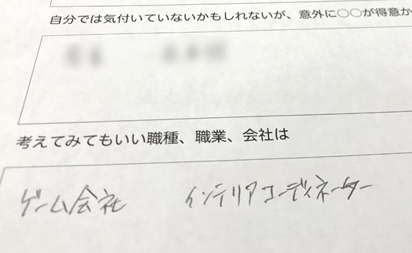 自分では気付いていないかもしれないが、意外に○○が得意か
考えてみてもいい職種、職業、会社は
ゲーム会社 インテリアコーディネーター